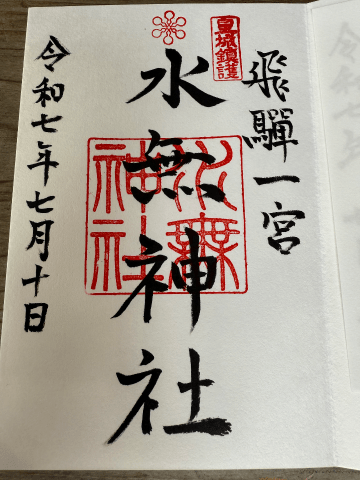 飛騨一宮
皇城鎮護
水無神社
水無神社
令和七年七月十日